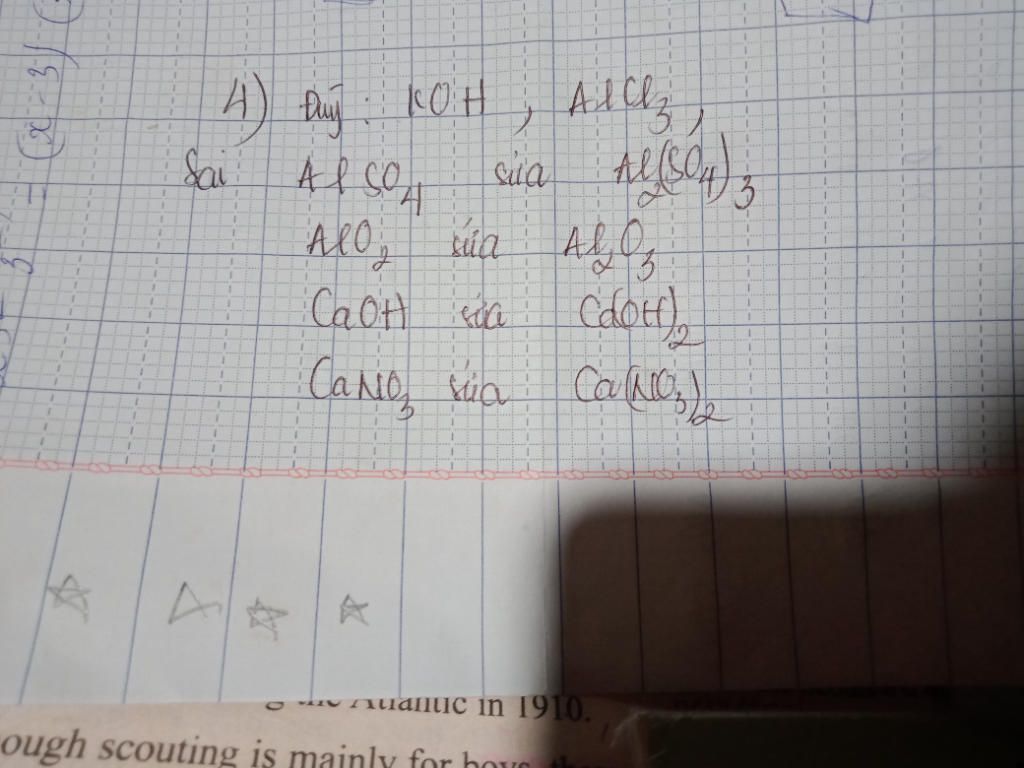 4) Đuý : KOH , AlCl₃ ,
Sai AlSO₄ sửa Al₂(SO₄)₃
AlO₂ sửa Al₂O₃
CaOH sửa Ca(OH)₂
CaNO₃ sửa Ca(NO₃)₂
- (x-3)
Atlantic in 1910.
ough scouting is mainly for boys,